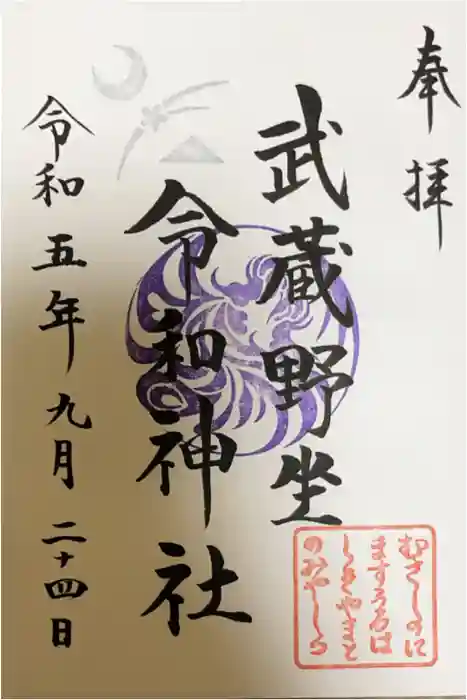 奉拝
武蔵野坐
令和神社
むさしのに
ますうるは
しきやまと
のみやしろ
令和五年九月二十四日